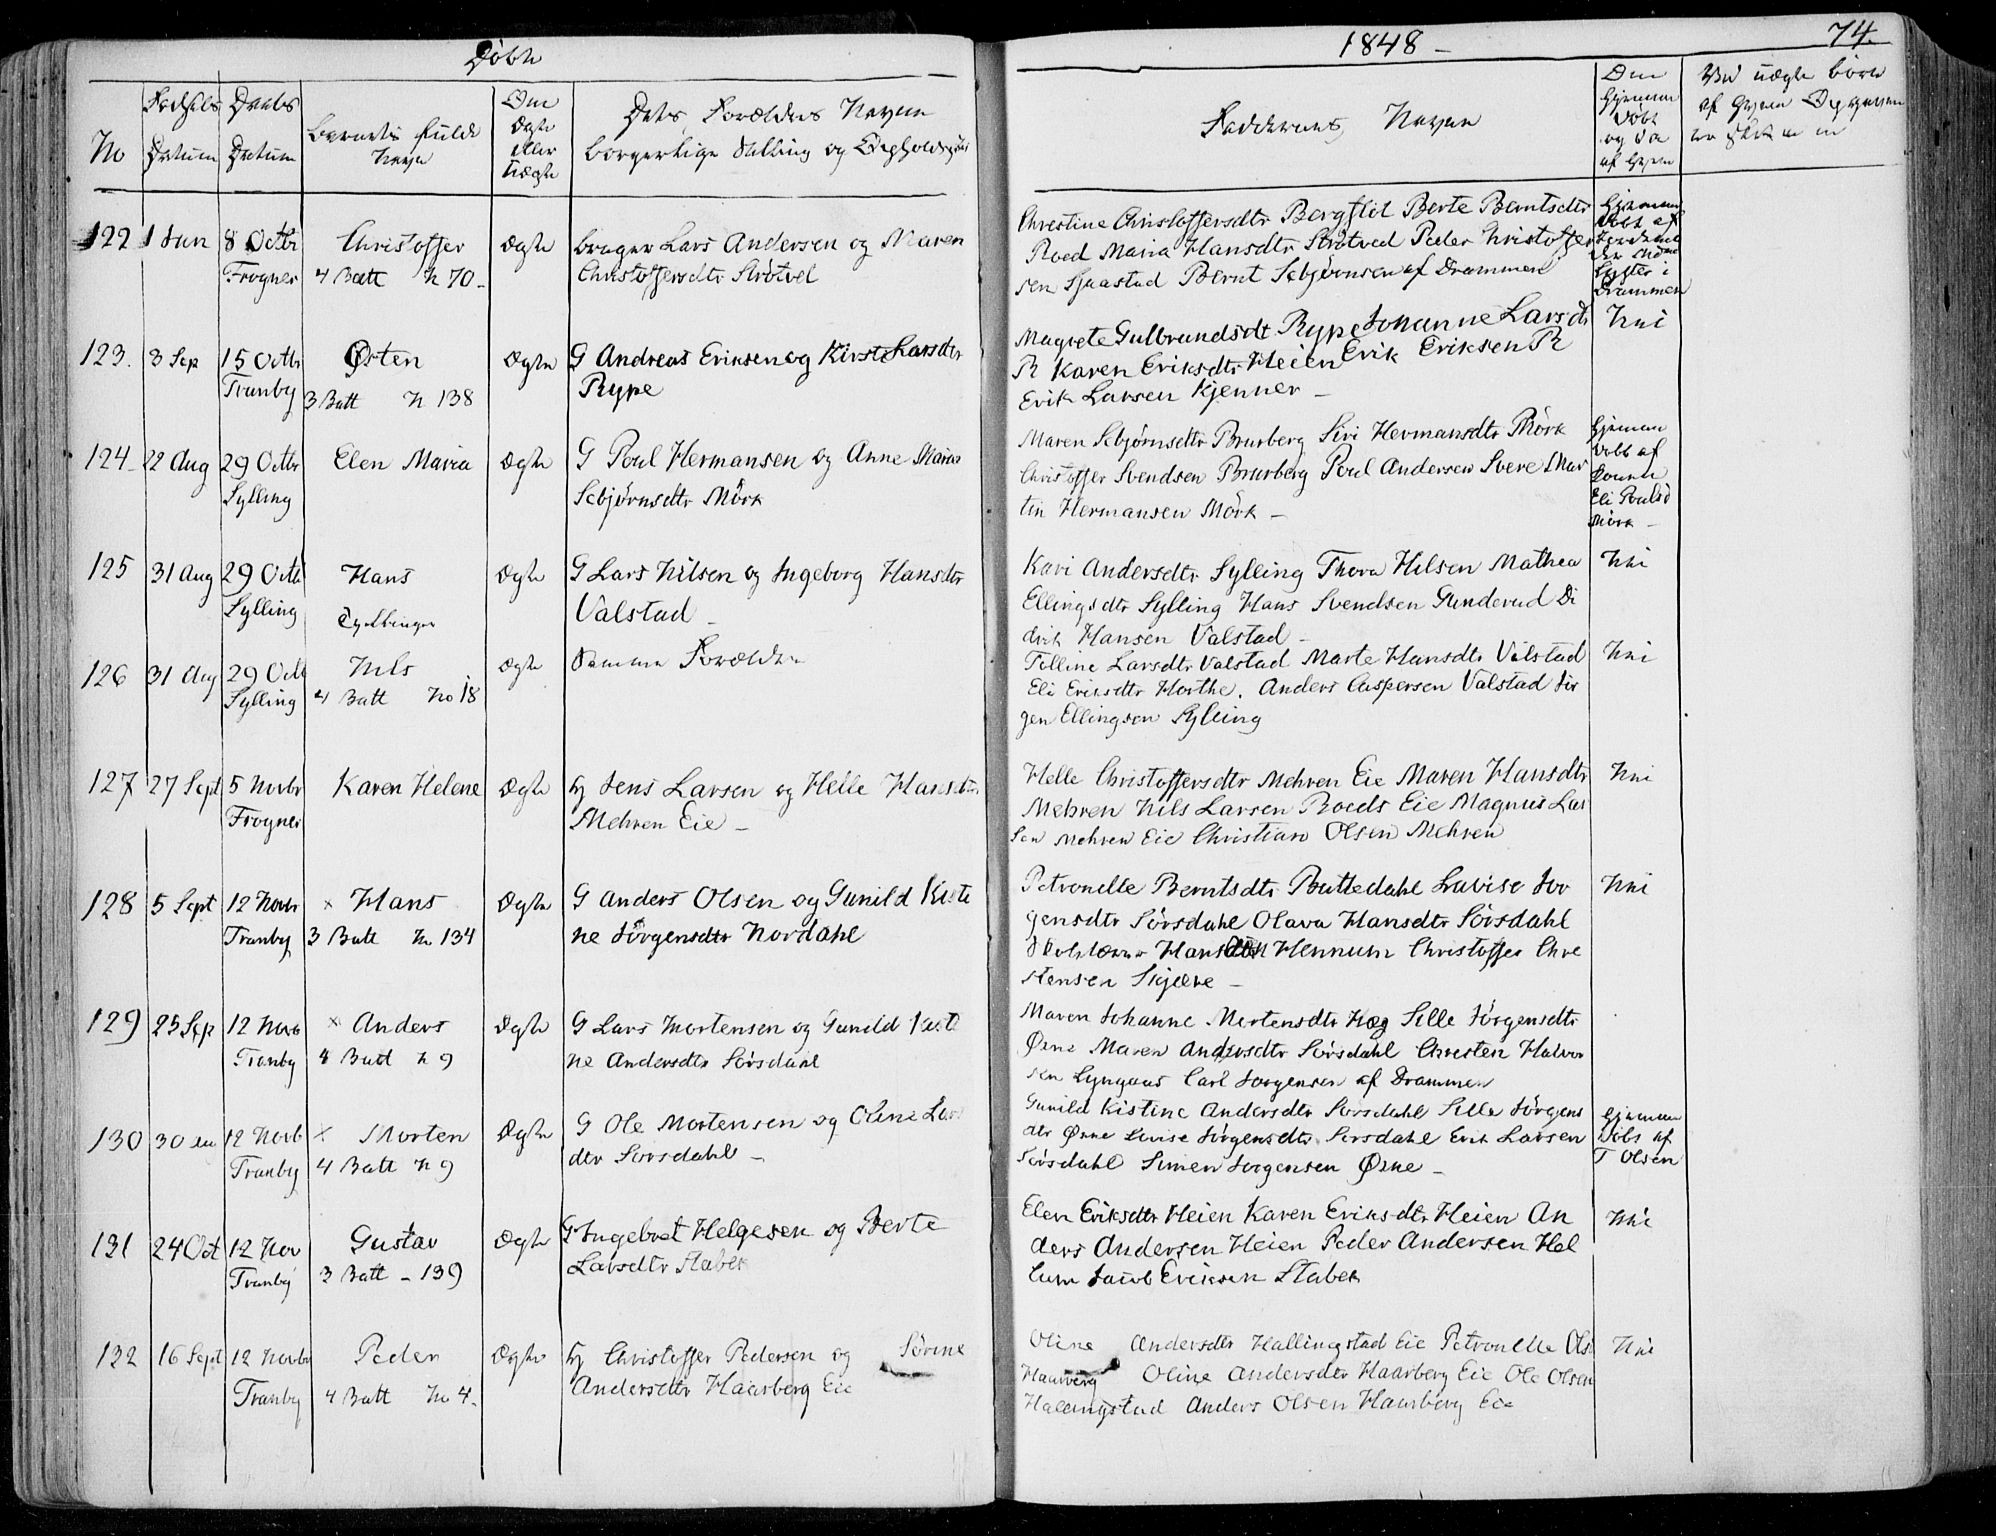 Døbte
1848 -
74.
No
Fødsels Datum
Daabs Datum
Barnets fulde Navn
Om Ægte eller Uægte
Dets Forældres Navne
borgerlige Stilling og Opholdssted
Faddernes Navne
Om Hjemmedøbt og da af Hvem
Ved uægte børn af Hvem
122 1 Jun 8 Octbr Christoffer Ægte bruger Lars Andersen og Maren
Frogner 4 Batt N 70 - Christoffersdtr Strøtvet
Christine Christoffersdtr Bergflot Berte Berntsdtr
Roed Maria Hansdtr Strøtved Peder Christoffer
sen Sjaastad Bernt Sebjørnsen af Drammen
Hjemme
døbt af
i
Drammen
123. 3 Sep 15 Octbr Østen Ægte G Andreas Eriksen og Kirsti Larsdtr
Tranby 3 Batt N 138 Rype
Magrete Gulbrandsdt Rype Johanne Larsdt
R Karen Eriksdtr Heien Erik Eriksen R
Erik Larsen Kjenner -
Nei
124 - 22 Aug 29 Octbr Elen Maria Ægte G Poul Hermansen og Anne Maria
Sylling Sebjørnsdtr Mörk
Maren Sebjørnsdtr Brurberg Siri Hermansdtr Mörk
Christoffer Svendsen Brurberg Poul Andersen Svere Mar
tin Hermansen Mörk -
Hjemme
døbt af
Eli Pouls
Mörk -
125 31 Aug 29 Octb Hans Ægte G Lars Nilsen og Ingeborg Hansdtr
Sylling Tvillinger Valstad -
Kari Andersdtr Sylling Thora Nilsen Mathea
Ellingsdtr Sylling Hans Svendsen Gunderud Di
drik Hansen Valstad -
Nei
126 31 Aug 29 Octb Nils Ægte Samme Forældre
Sylling 4 Batt No 18
Tolline Larsdtr Valstad Marte Hansdtr Valstad
Eli Eriksdtr Horthe. Anders Caspersen Valstad Jør
gen Ellingsen Sylling
Nei
127 27 Sept 5 Novbr Karen Helene Ægte Hj Jens Larsen og Helle Hansdtr
Frogner Mehren Eie -
Helle Christoffersdtr Mehren Eie Maren Hansdtr
Mehren Nils Larsen Roeds Eie Magnus Lar
sen Mehren Eie Christian Olsen Mehren
Nei
128 5 Sept 12 Novbr × Hans Ægte G Anders Olsen og Gunild Kisti
Tranby 3 Batt No 134 ne Jörgensdtr Nordahl
Petronelle Berntsdtr Buttedahl Lovise Jør
gensdtr Sörsdahl Olava Hansdtr Sörsdahl
Skolelærer Hans Hennum Christoffer Chre
stensen Skjære -
Nei
129 25 Sep 12 Novb × Anders Ægte G Lars Mortensen og Gunild Kisti
Tranby 4 Batt N 9 ne Andersdtr Sörsdahl
Maren Johanne Mortensdtr Hæg Sille Jörgensdtr
Ørne Maren Andersdtr Sörsdahl Christen Halvor
sen Lyngaas Carl Jørgensen af Drammen
130 30 12 Novb × Morten Ægte G Ole Mortensen og Oline Lars
Tranby 4 Batt N 9 dtr Sørsdahl -
Gunild Kistine Andersdtr Sørsdahl Sille Jörgens
dtr Ørne Lovise Jörgensdtr Sørsdahl Erik Larsen
Sörsdahl Simen Jørgensen Ørne -
Hjemme
døbt af
T Olsen
131 24 Oct 12 Nov Gustav Ægte G Ingebret Helgesen og Berte
Tranby 3 Batt - 139 Larsdtr Stabek
Elen Eriksdtr Heien Karen Eriksdtr Heien An
ders Andersen Heien Peder Andersen Hel
lum Jacob Eriksen Stabek
Nei
132 16 Sept 12 Novbr Peder Ægte Hj Christoffer Pedersen og Sörine
Tranby 4 Batt No 4. Andersdtr Haarberg Eie
Oline Andersdtr Hallingstad Eie Petronelle Ols
Haarberg Oline Andersdtr Haarberg Eie Ole Olsen
Hallingstad Anders Olsen Haarberg Eie
Nei